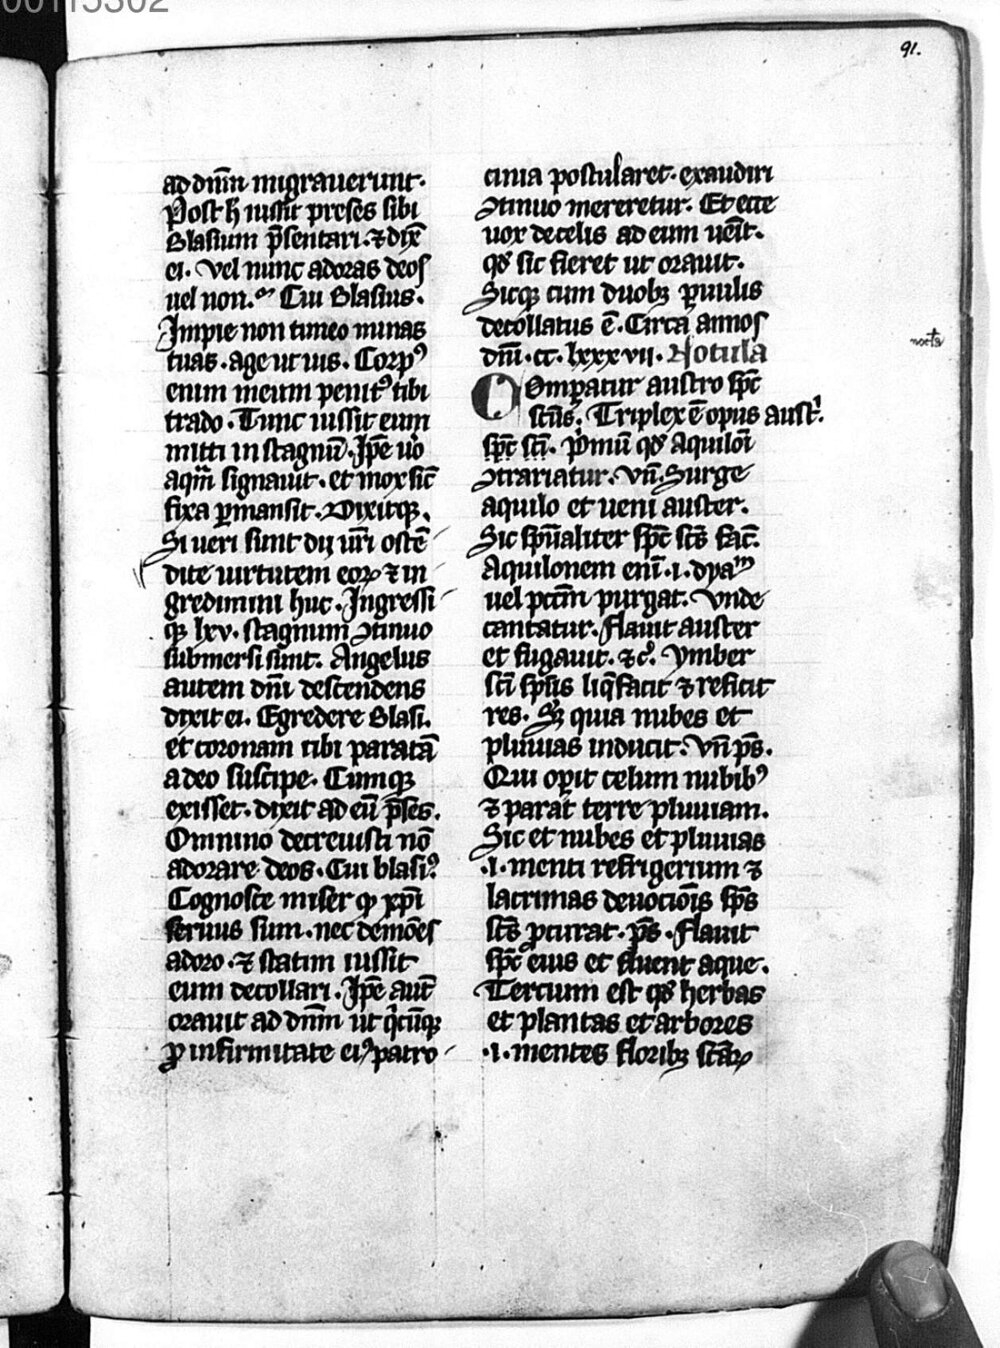 00115302
91.
ad dn̄m migrauerunt.
Post h̄ iussit preses sibi
Blasium p̄sentari. ⁊ dix̄
ei. Vel nunc adoras deos
uel non. Cui Blasius.
Impie non timeo minas
tuas. age ut uis. Corpꝰ
enim meum penitꝰ tibi
trado. Tunc iussit eum
mitti in stagnū. Ip̄e uo
aqm̄ signauit. et mox sic̄
fixa ꝑmansit. Dixitqꝫ.
Si ueri sunt dij ur̄i ostē
dite uirtutem eoꝝ ⁊ in
gredimini huc. Ingressi
qꝫ lxv. stagnum ↄtinuo
submersi sunt. Angelus
autem dn̄i descendens
dixit ei. Egredere Blasi.
et coronam tibi paratā
a deo suscipe. Cumqꝫ
exisset. dixit ad eū p̄ses.
Omnino decreuisti nō
adorare deos. Cui blasiꝰ.
Cognosce miser ꝙ xp̄i
seruus sum. nec demōes
adoro. ⁊ statim iussit
eum decollari. Ip̄e aut̄
orauit ad dn̄m ut q̄cūqꝫ
ꝓ infirmitate eiꝰ patro
cinia postularet. exaudiri
ↄtinuo mereretur. Et ecce
uox de celis ad eum uēit.
qđ sic fieret ut orauit.
Sicqꝫ cum duobꝫ ꝑuulis
decollatus ē. Circa annos
dn̄i. cc. lxxxvii. Notula
Comꝑatur austro sp̄c
sc̄us. Triplex ē opus aust.
sp̄c sc̄i. P̄mū qđ aquiloi
ↄtrariatur. vn̄. Surge
aquilo et ueni auster.
Sic sp̄ualiter sp̄c sc̄s fac̄.
Aquilonem eni. i. dyam
uel pc̄cm purgat. Vnde
cantatur. Flauit auster
et fugauit. ⁊c̄. Ymber
sc̄i sp̄sis liq̄facit ⁊ reficit
res. Sꝫ quia nubes et
pluuias inducit. Vn̄ ps̄.
Qui oꝑit celum nubibꝰ
⁊ parat terre pluuiam.
Sic et nubes et pluuias
.i. menti refrigerium ⁊
lacrimas deuociōis sp̄s
sc̄s ꝓcurat. ps̄. Flauit
sp̄c eius et fluent aque.
Tercium est qđ herbas
et plantas et arbores
.i. mentes floribꝫ sc̄aꝝ